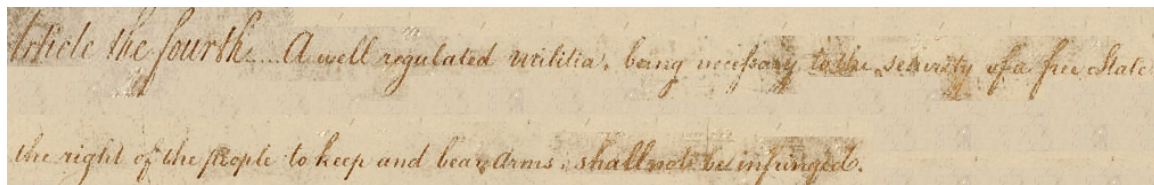 Article the fourth.....A well regulated militia, being necessary to the security of a free State
the right of the people to keep and bear arms, shall not be infringed.